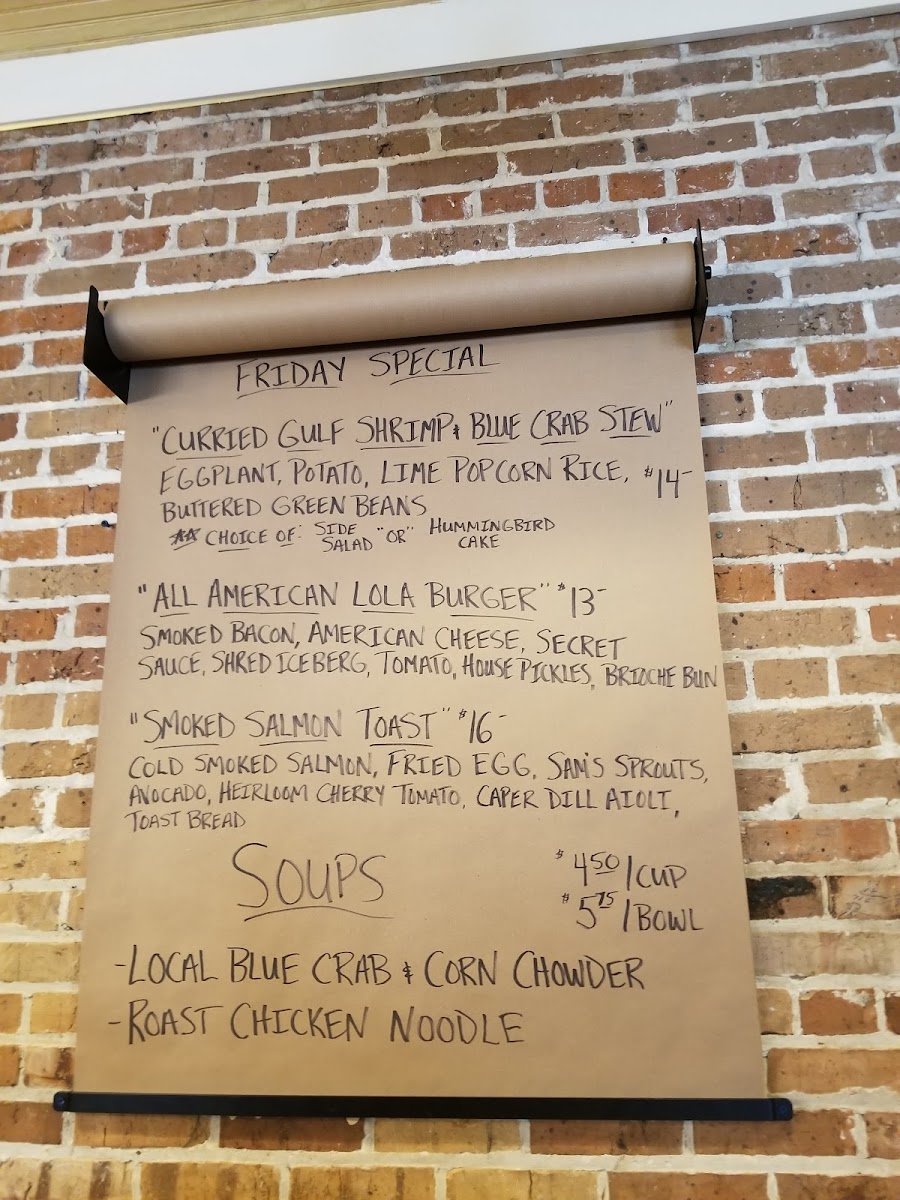 FRIDAY SPECIAL
"CURRIED GULF SHRIMP & BLUE CRAB STEW"
EGGPLANT, POTATO, LIME POPCORN RICE, $14-
BUTTERED GREEN BEANS
** CHOICE OF: SIDE SALAD "OR" HUMMINGBIRD CAKE
"ALL AMERICAN LOLA BURGER" $13-
SMOKED BACON, AMERICAN CHEESE, SECRET
SAUCE, SHRED ICEBERG, TOMATO, HOUSE PICKLES, BRIOCHE BUN
"SMOKED SALMON TOAST" $16-
COLD SMOKED SALMON, FRIED EGG, SAM'S SPROUTS,
AVOCADO, HEIRLOOM CHERRY TOMATO, CAPER DILL AIOLI,
TOAST BREAD
SOUPS
$4.50/CUP
$5.75/BOWL
-LOCAL BLUE CRAB & CORN CHOWDER
-ROAST CHICKEN NOODLE